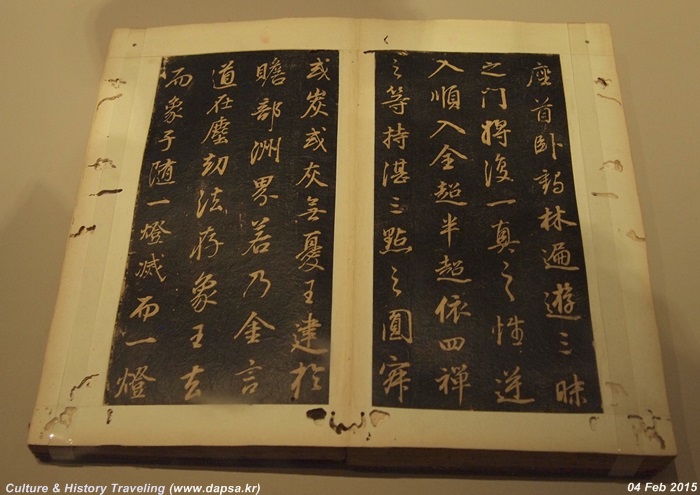 座首卧鶴林遍遊三昧
之门將復一真之性逆
入順入全超半超依四禪
之等持湛三點之圓寂
或炭或灰無憂王建於
瞻部洲界若乃金言
道在塵劫法存象王去
而象子随一燈滅而一燈
Culture & History Traveling (www.dapsa.kr)
04 Feb 2015